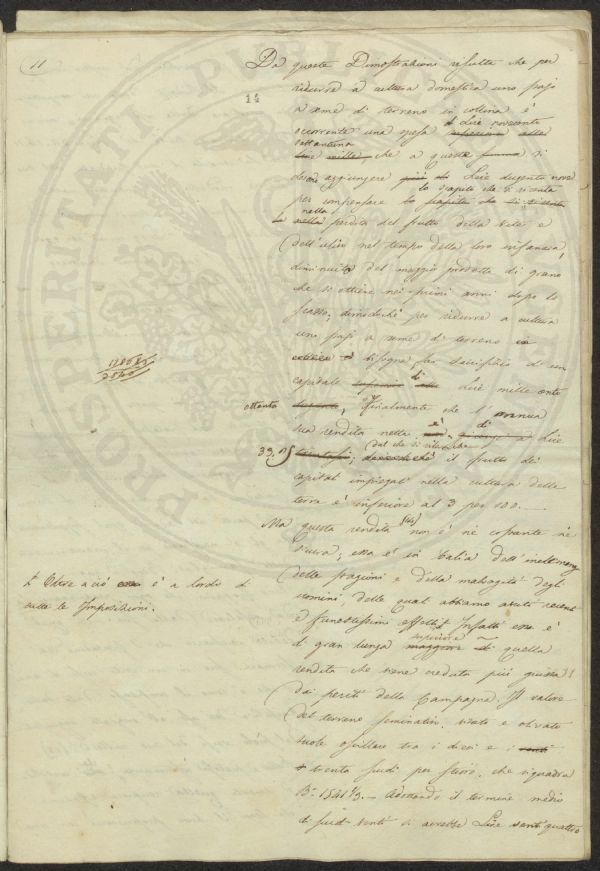 11
14
Da queste Dimostrazioni risulta che per
ridurre a cultura domestica uno
di terreno in collina è
di Lire novecento
occorrente una spesa superiore alle
settantuna
Lire mille che a questa somma si
deve aggiungere più di Lire dugento nove
lo scapito che si risenta
per compensare lo scapito che si risente
nella
nella perdita del frutto della vite e
dell'ulivo nel tempo della loro infanzia,
diminuita del maggio prodotto di grano
che si ottiene nei primi anni dopo lo
scasso; dimodoché per ridurre a cultura
uno di terreno in
collina bisogna far sacrifizio d'un
capitale di Lire mille cento
ottanta
Finalmente che l'annua
sua rendita netta è di Lire
33.
trentasei; dal che risulta che il frutto dei
capitali impiegati nella cultura delle
terre è inferiore al 3 per 100.
Ma questa rendita non è né costante né
sicura; essa è in balìa dell'intemperie
delle stagioni e della malvagità degli
uomini, delle quali abbiamo avuti recenti
e funestissimi effetti. Infatti essa è
superiore
di gran lunga maggiore di quella
rendita che viene creduta più giusta
dai periti della Campagna. Il valore
del terreno seminativo, vitato e olivato
suole oscillare tra i dieci e i venti
trenta scudi per stioro, che riquadra
B.ª 1541 1/3. Adottando il termine medio
di scudi venti si avrebbe Lire ventiquattro
Oltre a ciò è a lordo di
tutte le Imposizioni.